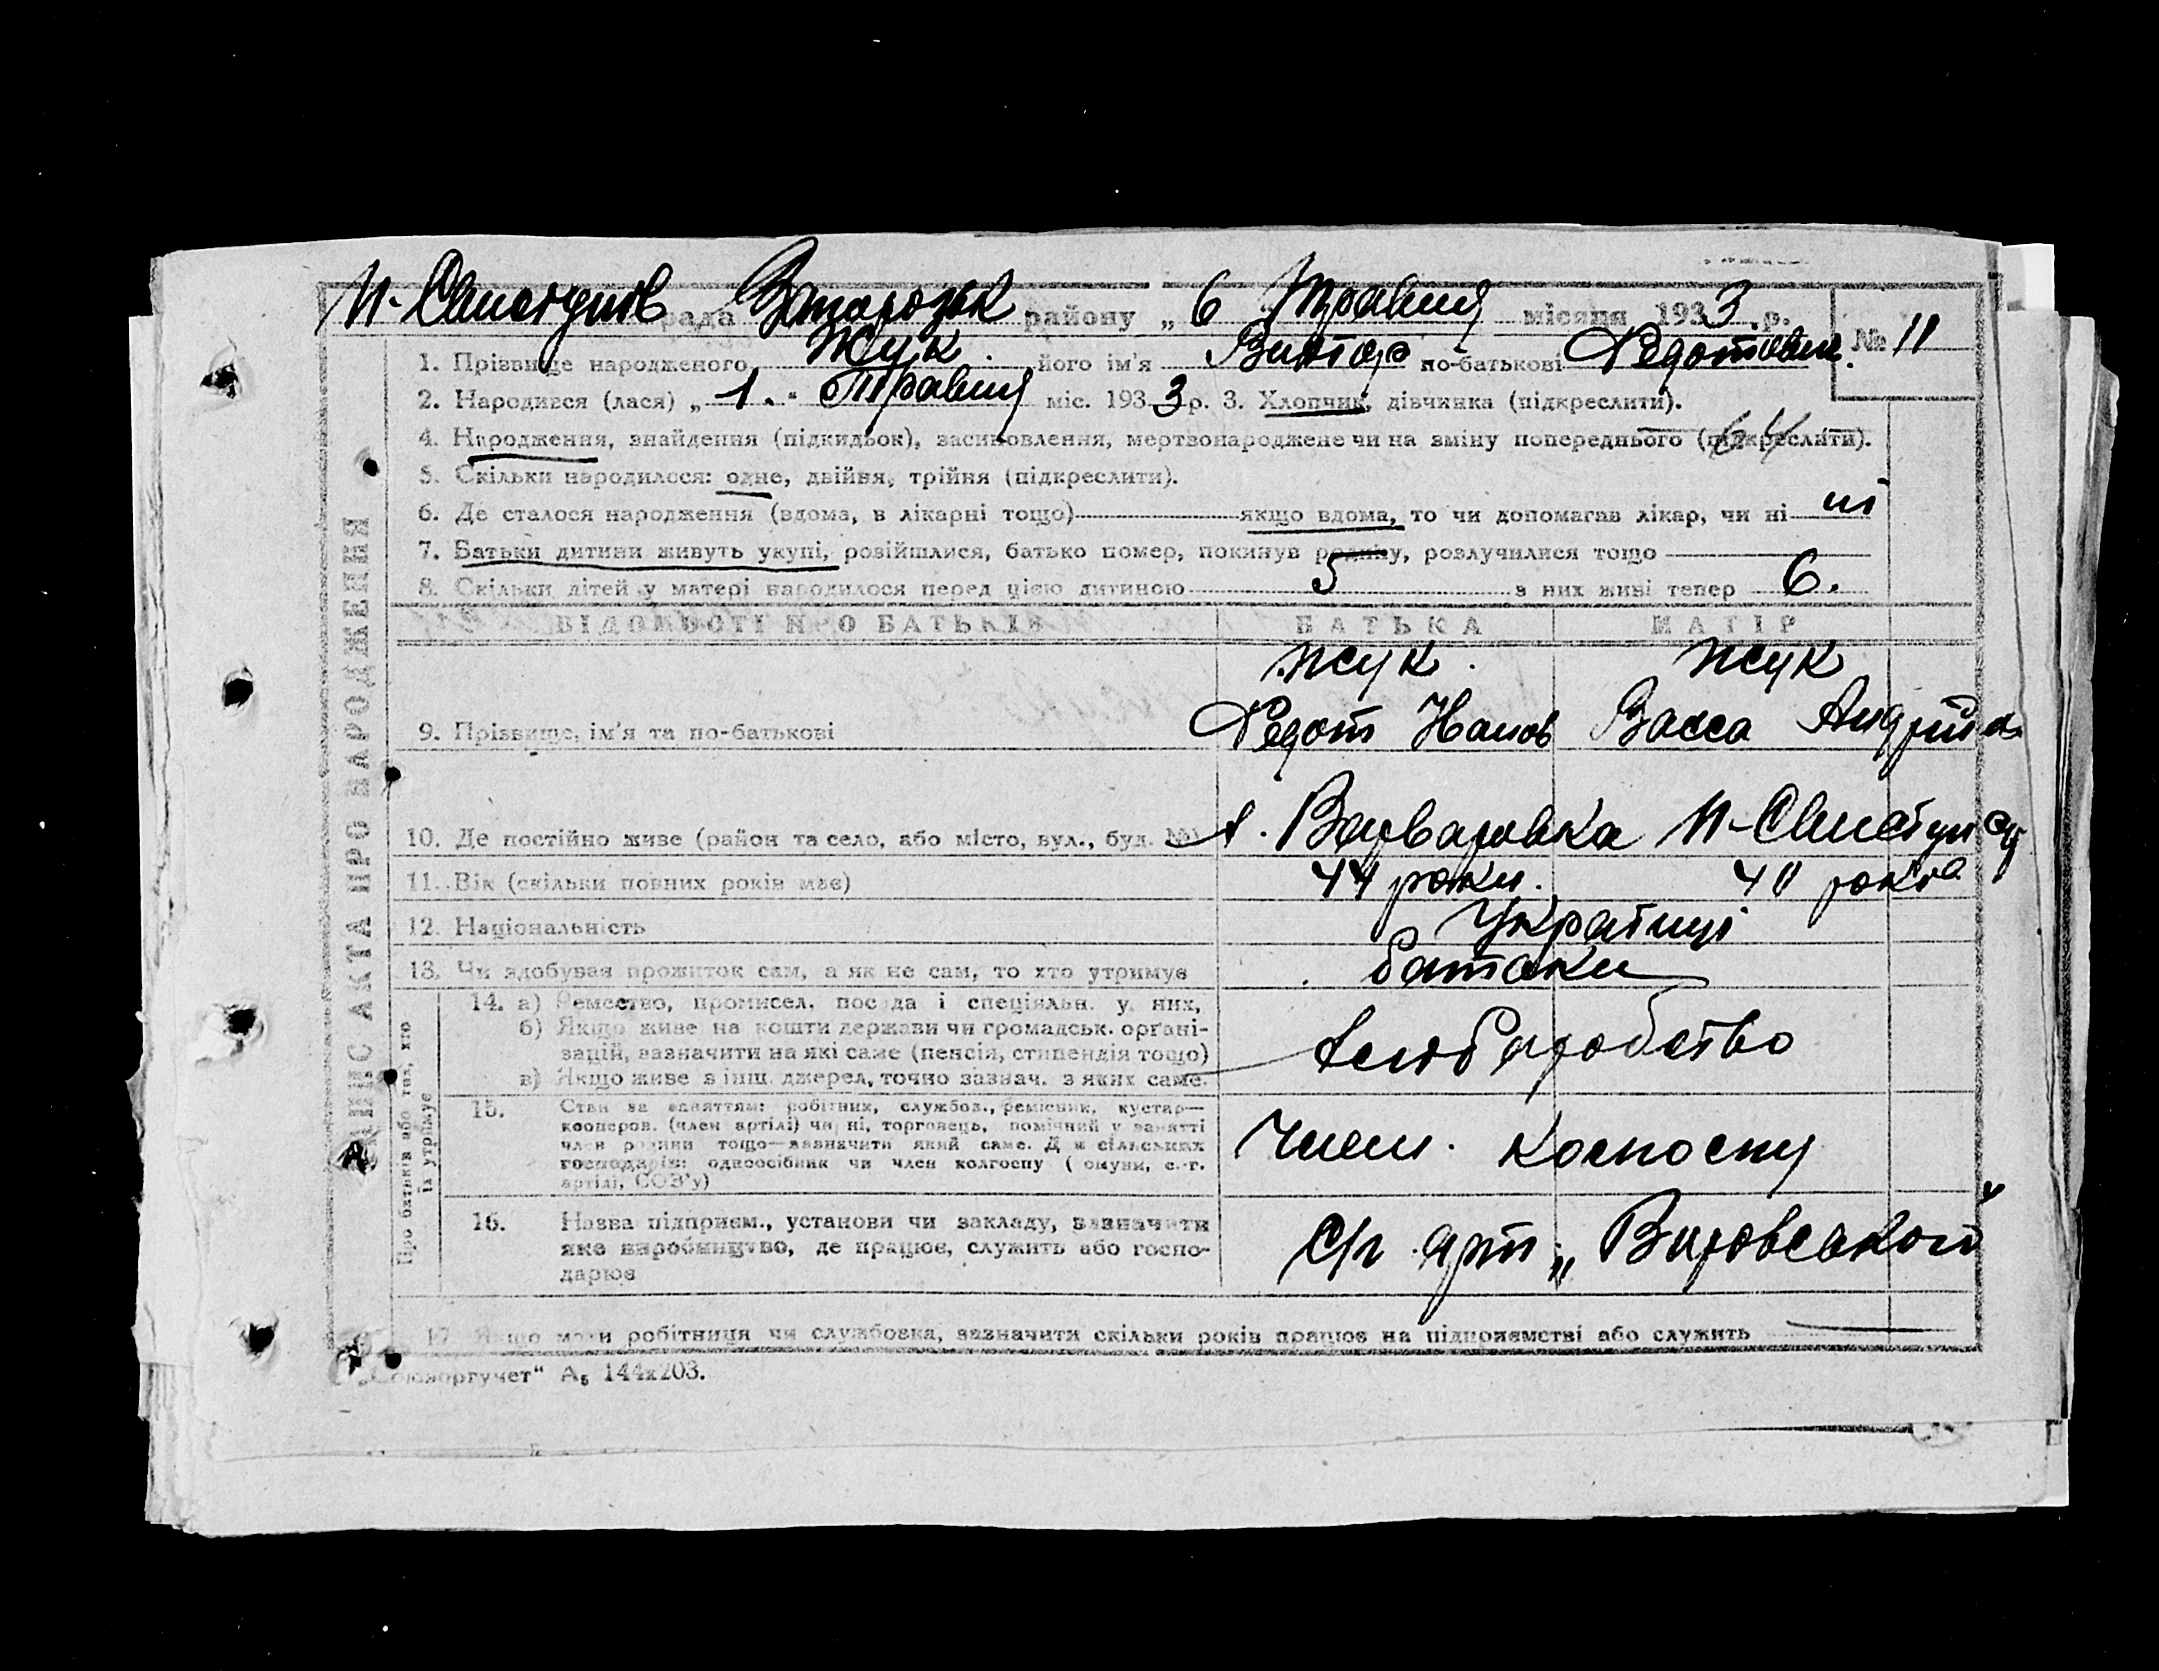 И-Свистунів рада Запорозьк району „ 6 Травня місяця 1933 р. № 11
1. Прізвище народженого Жук його ім'я Виктор по-батькові Федотович.
2. Народився (лася) „ 1. " Травня міс. 1933 р. 3. Хлопчик, дівчинка (підкреслити).
4. Народження, знайдення (підкидьок), засиновлення, мертвонароджене чи на зміну попереднього (підкреслити).
5. Скільки народилося: одне, двійня, трійня (підкреслити).
6. Де сталося народження (вдома, в лікарні тощо) якщо вдома, то чи допомагав лікар, чи ні ні
7. Батьки дитини живуть укупі, розійшлися, батько помер, покинув родину, розлучилися тощо
8. Скільки дітей у матері народилося перед цією дитиною 5 з них живі тепер 6.
ВІДОМОСТІ ПРО БАТЬКІВ БАТЬКА МАТІР
Жук. Жук
9. Прізвище, ім'я та по-батькові Федот Иванов Васса Андрій
10. Де постійно живе (район та село, або місто, вул., буд. №) с. Варваровка И-Свистун с/р
11. Вік (скільки повних років має) 44 роки. 40 років
12. Національність Українці
13. Чи здобував прожиток сам, а як не сам, то хто утримує батьки
14. а) Ремество, промисел, посада і спеціяльн. у них,
б) Якщо живе на кошти держави чи громадськ. орґані-
зацій, зазначити на які саме (пенсія, стипендія тощо)
в) Якщо живе з інш. джерел, точно зазнач. з яких саме.
15. Стан за заняттям: робітник, службов., ремісник, кустар—
кооперов. (член артілі) чи ні, торговець, помічний у занятті
член родини тощо—зазначити який саме. Для сільських
господарів: одноосібник чи член колгоспу (
артілі, СОЗ'у)
Член. колгоспу
16. Назва підприєм., установи чи закладу, зазначити
яке виробництво, де працює, служить або госпо-
дарює
С/г арт „
17. Якщо мати робітниця чи службовка, зазначити скільки років працює на підприємстві або служить
„Союзоргучет" А₅ 144х203.
ЗАПИС АКТА ПРО НАРОДЖЕННЯ
Про батьків або тих, хто
їх утримує